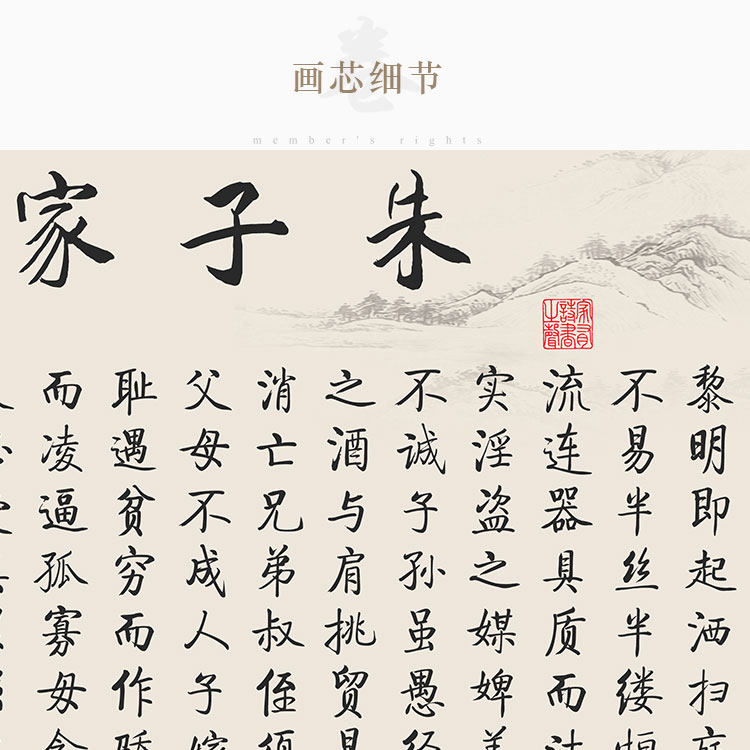 画芯细节
member's rights
朱子家
黎明即起洒扫
不易半丝半缕恒
流连器具质而洁
实淫盗之媒婢美
不诚子孙虽愚经
之酒与肩挑贸
消亡兄弟叔侄须
父母不成人子嫁
耻遇贫穷而作骄
而凌逼孤寡毋贪